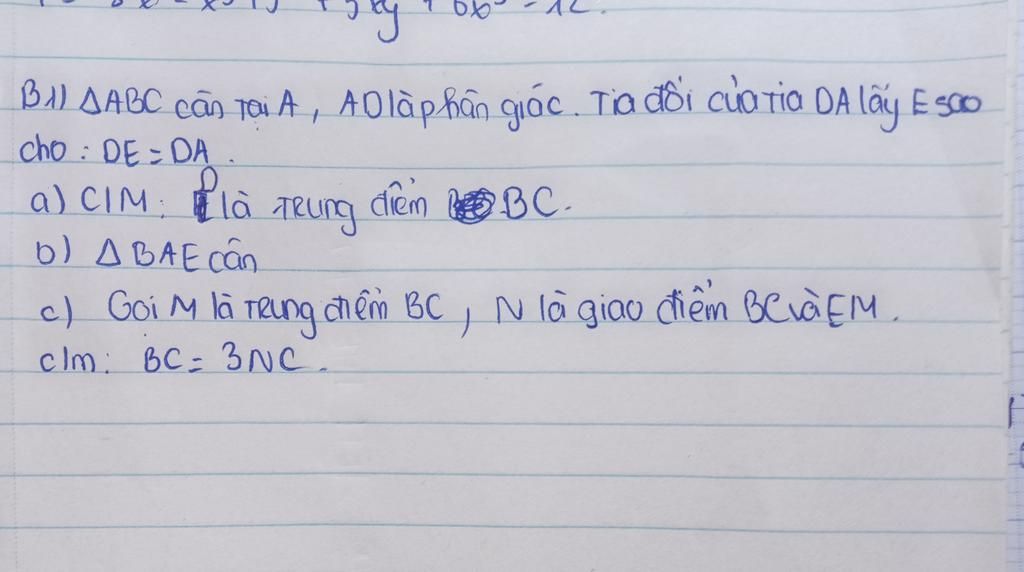 B1) ΔABC cân tại A, AD là phân giác. Tia đối của tia DA lấy E sao
cho: DE = DA.
a) C/M: D là trung điểm BC.
b) Δ BAE cân
c) Gọi M là trung điểm BC, N là giao điểm BC và EM.
c/m: BC = 3NC.